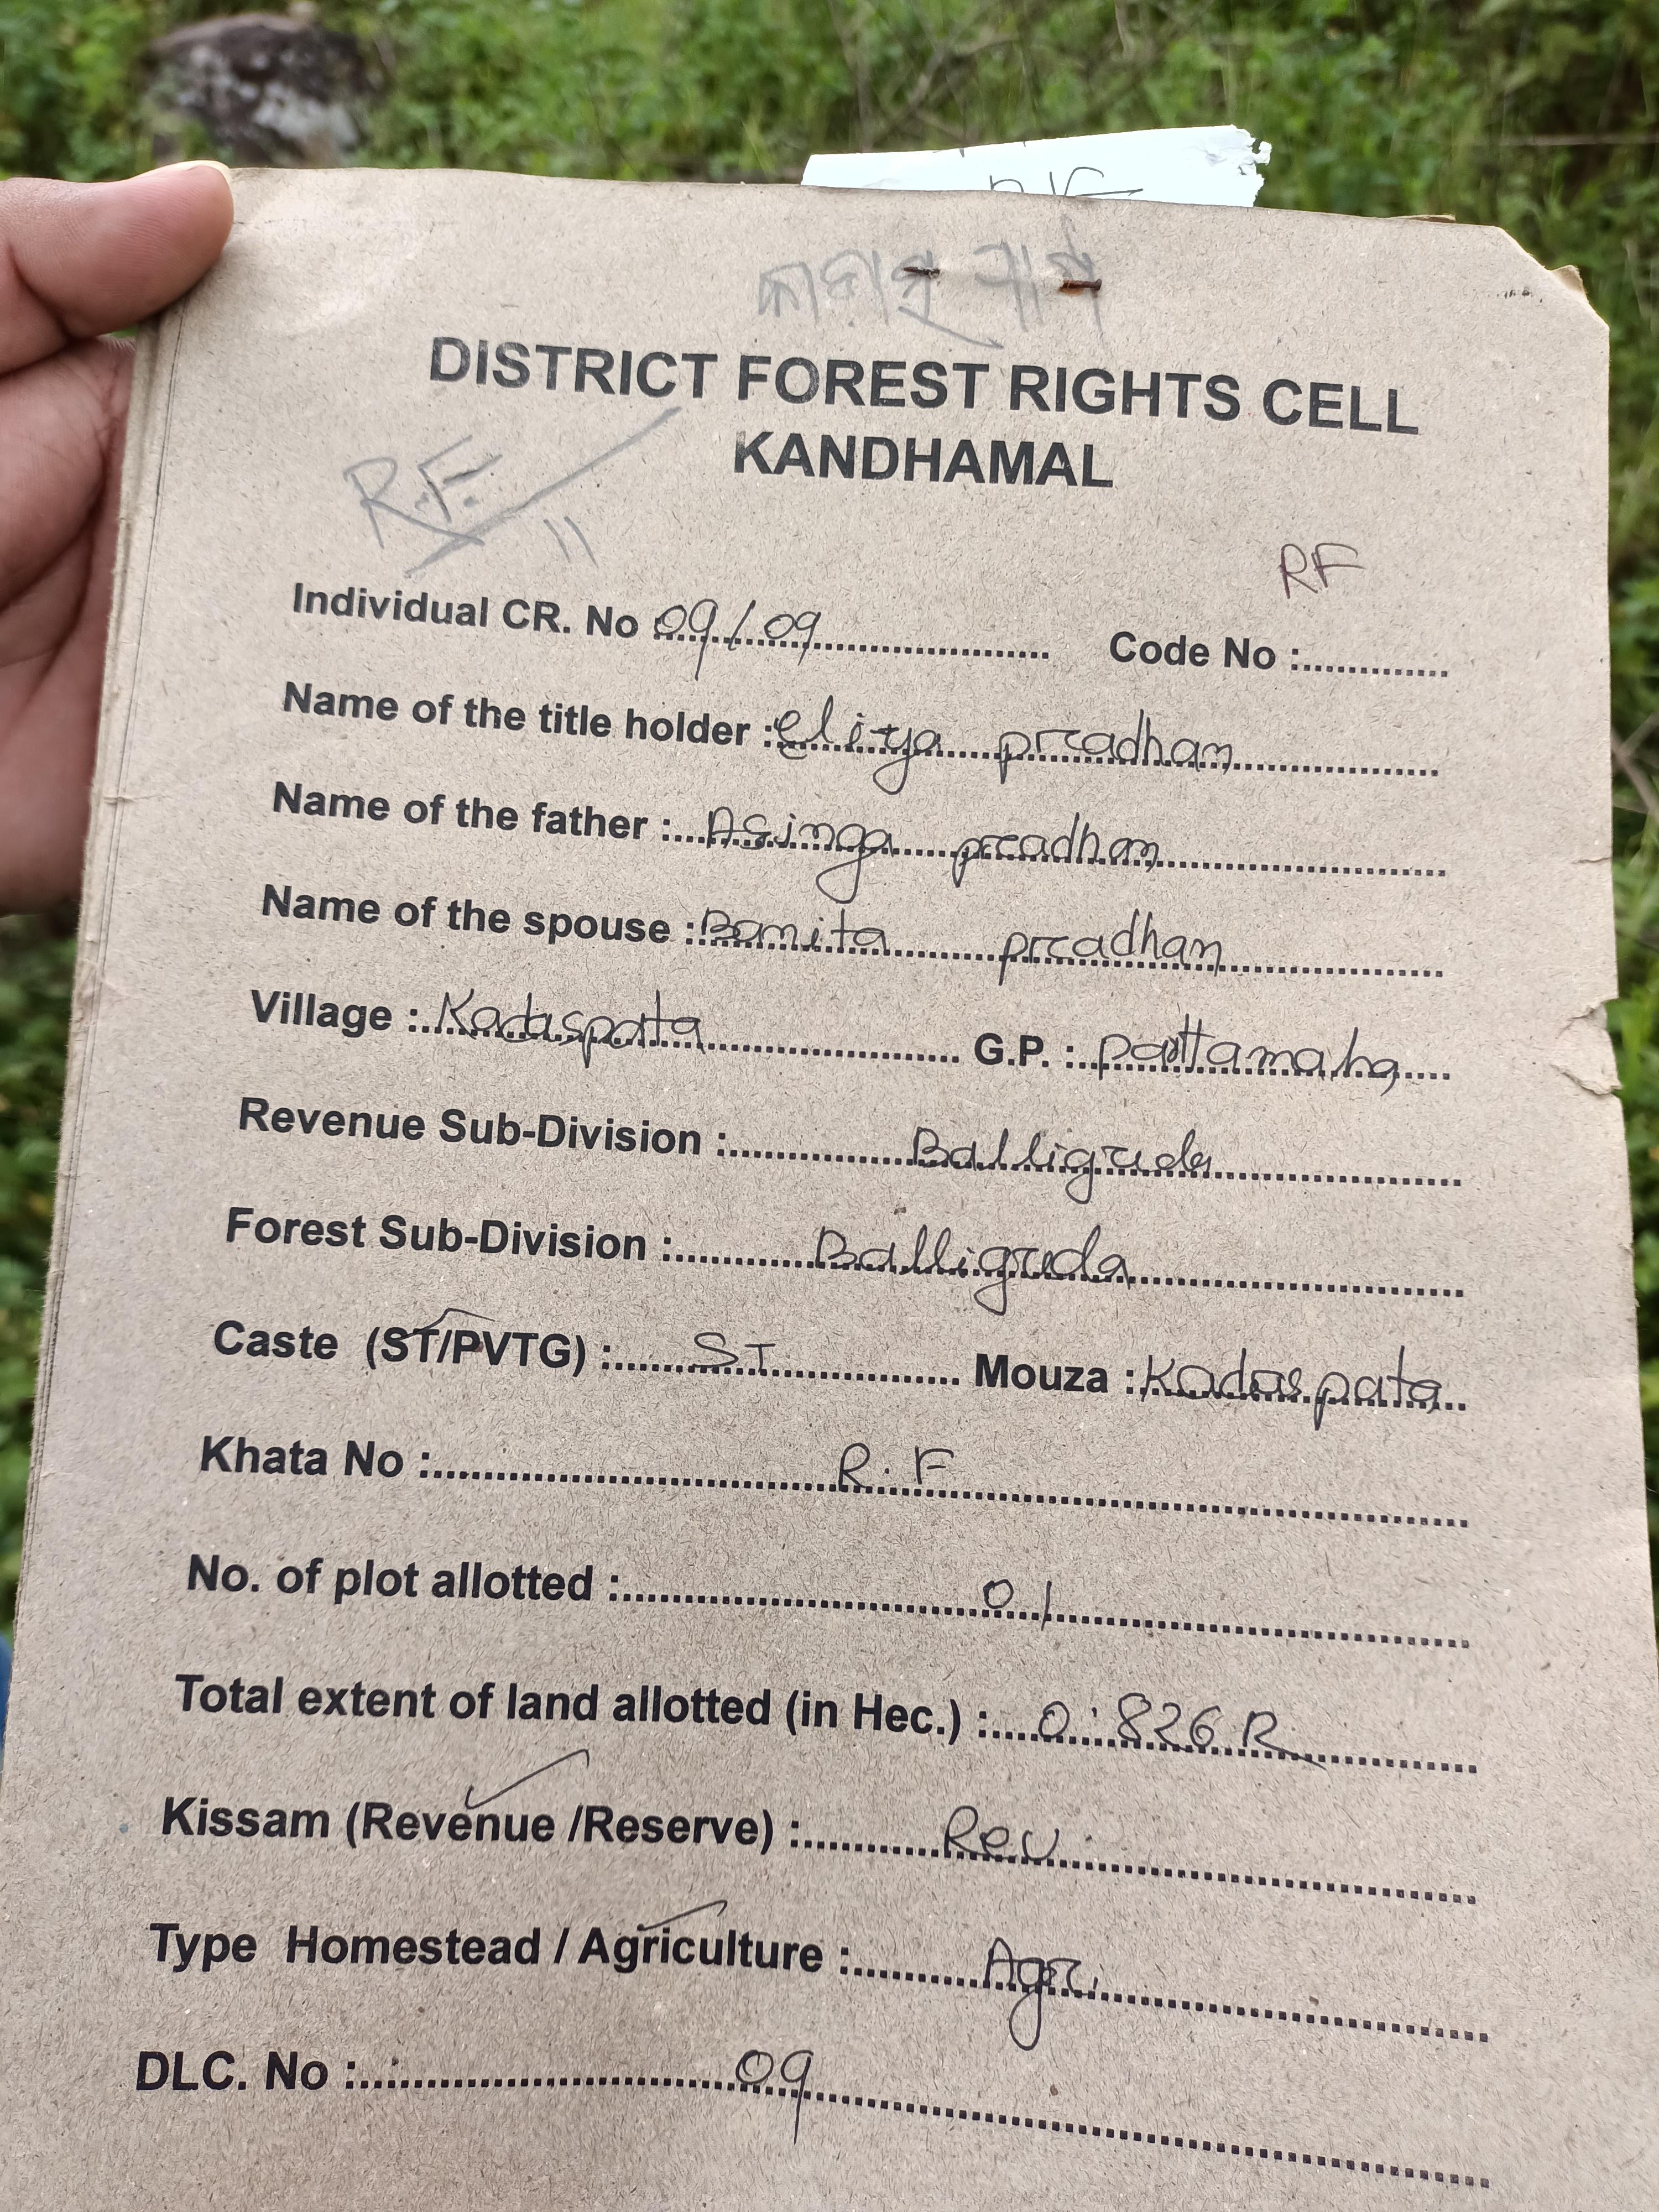 DISTRICT FOREST RIGHTS CELL
KANDHAMAL
R.F. 11
RF
Individual CR. No 09/09 Code No :
Name of the title holder : Eliya pradhan
Name of the father : Asinga pradhan
Name of the spouse : Banita pradhan
Village : Kadaspata G.P. : pattamaha
Revenue Sub-Division : Balliguda
Forest Sub-Division : Balliguda
Caste (ST/PVTG) : ST Mouza : Kadaspata
Khata No : R.F
No. of plot allotted : 01
Total extent of land allotted (in Hec.) : 0.826 R
Kissam (Revenue /Reserve) : Rev.
Type Homestead / Agriculture : Agr.
DLC. No : 09